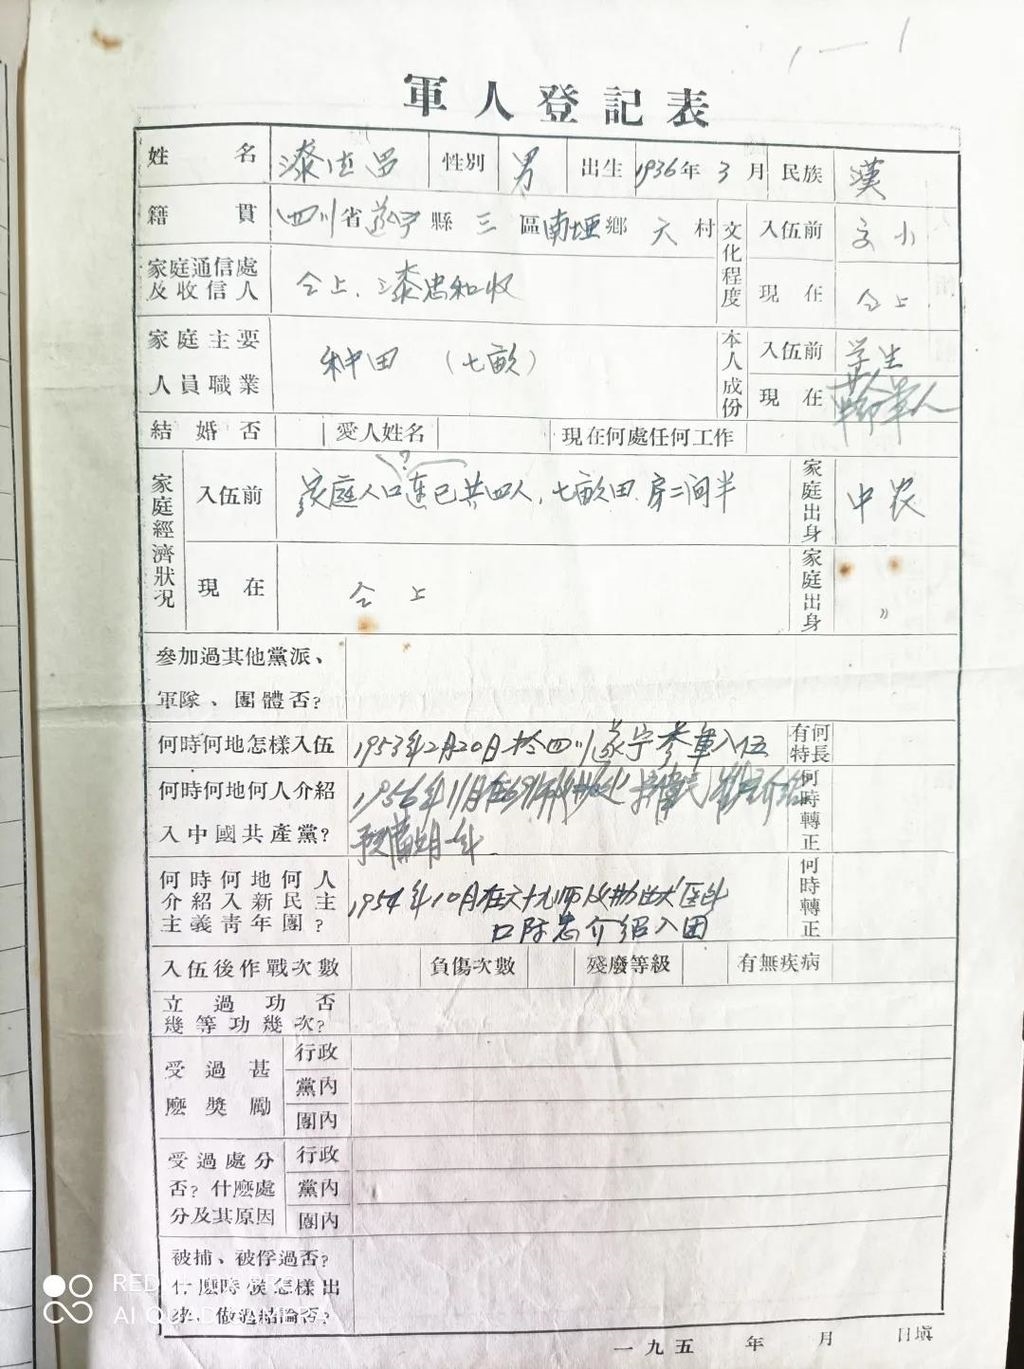 1—1
軍人登記表
姓名 漆 性別 男 出生 1936年3月 民族 漢
籍貫 四川省遂宁縣三區南垭鄉六村 文化程度 入伍前 小
家庭通信處及收信人 仝上.漆忠和收 現在 仝上
家庭主要人員職業 种田(七畝) 本人成份 入伍前 学生
現在 革命軍人
結婚否 愛人姓名 現在何處任何工作
?
家庭經濟狀況 入伍前 家庭人口連已共四人,七畝田.房二间半 家庭出身 中农
現在 仝上 家庭出身 〃
參加過其他黨派、
軍隊、團體否?
何時何地怎樣入伍 1953年2月20日於四川遂宁参軍入伍 有何特長
何時何地何人介紹 1956年11月在 介紹 何時轉正
入中國共產黨? 预備期一年
何時何地何人
介紹入新民主 1954年10月在六十九师 医
主義青年團? 介紹入团 何時轉正
入伍後作戰次數 負傷次數 殘廢等級 有無疾病
立過功否
幾等功幾次?
受過甚麽獎勵 行政
黨內
團內
受過處分否?什麽處分及其原因 行政
黨內
團內
被捕、被俘過否?
什麽時候怎樣出
來、做過結論否?
一九五 年 月 日填
RED
AI QUAD CAMERA